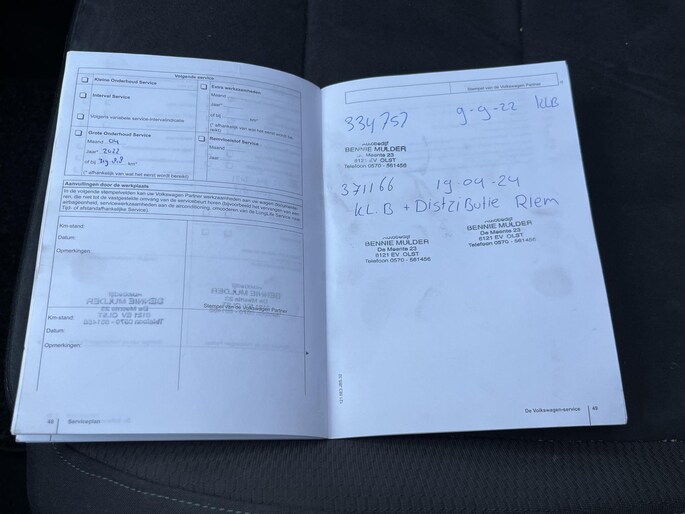 Volgende service
Kleine Onderhoud Service
Interval Service
Volgens variabele service-intervalindicatie
Grote Onderhoud Service
Maand 04
Jaar* 2022
of bij km*
(* afhankelijk van wat het eerst wordt bereikt)
Extra werkzaamheden:
Maand
Jaar*
of bij km*
(* afhankelijk van wat het eerst wordt bereikt)
Roetvrijtest Service
Maand
Jaar
Aanvullingen door de werkplaats
Km-stand:
Datum:
Opmerkingen:
Stempel van de Volkswagen Partner
Km-stand:
Datum:
Opmerkingen:
48 Serviceplan
Stempel van de Volkswagen Partner
334757 9-9-22 KLB
BENNIE MULDER
De Meente 23
8121 EV OLST
Telefoon 0570 - 561456
371166 19-04-24
KL.B + Distzibutie Riem
BENNIE MULDER
De Meente 23
8121 EV OLST
Telefoon 0570 - 561456
BENNIE MULDER
De Meente 23
8121 EV OLST
Telefoon 0570 - 561456
De Volkswagen-service 49